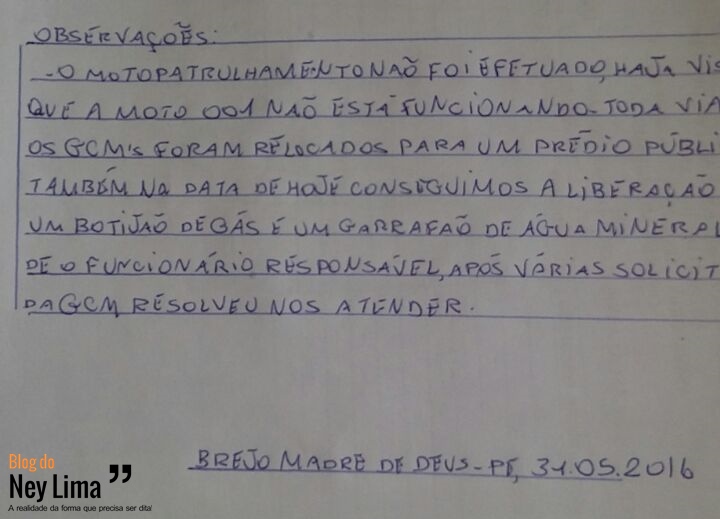 OBSERVAÇÕES:
- O MOTOPATRULHAMENTO NAÕ FOI EFETUADO, HAJA VIS
QUE A MOTO 001 NAÕ ESTÁ FUNCIONANDO. TODA VIA
OS GCM's FORAM RELOCADOS PARA UM PRÉDIO PÚBLI
TAMBÉM NA DATA DE HOJE CONSEGUIMOS A LIBERAÇAÕ
UM BOTIJAÕ DE GÁS E UM GARRAFAÕ DE ÁGUA MINERAL
DE O FUNCIONÁRIO RESPONSÁVEL, APÓS VÁRIAS SOLICIT
DA GCM, RESOLVEU NOS ATENDER.
BREJO MADRE DE DEUS - PE, 31.05.2016
Blog do
Ney Lima ”
A realidade da forma que precisa ser dita!